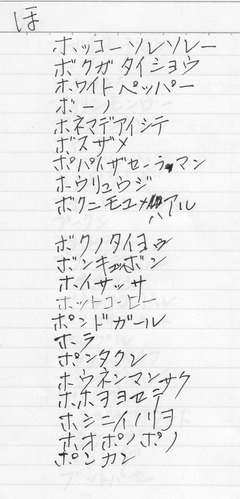 ほ
ホッコーソレソレー
ボクガタイショウ
ホワイトペッパー
ボーノ
ホネマデアイシテ
ボスザメ
ポパイザセーラーマン
ホウリュウジ
ボクニモユメハアル
ボクノタイヨウ
ボンキュボン
ホイサッサ
ホットコーヒー
ボンドガール
ホラ
ポンタクン
ホウネンマンサク
ホホヨヨセテ
ホシニイノリヲ
ホオポノポノ
ポンカン